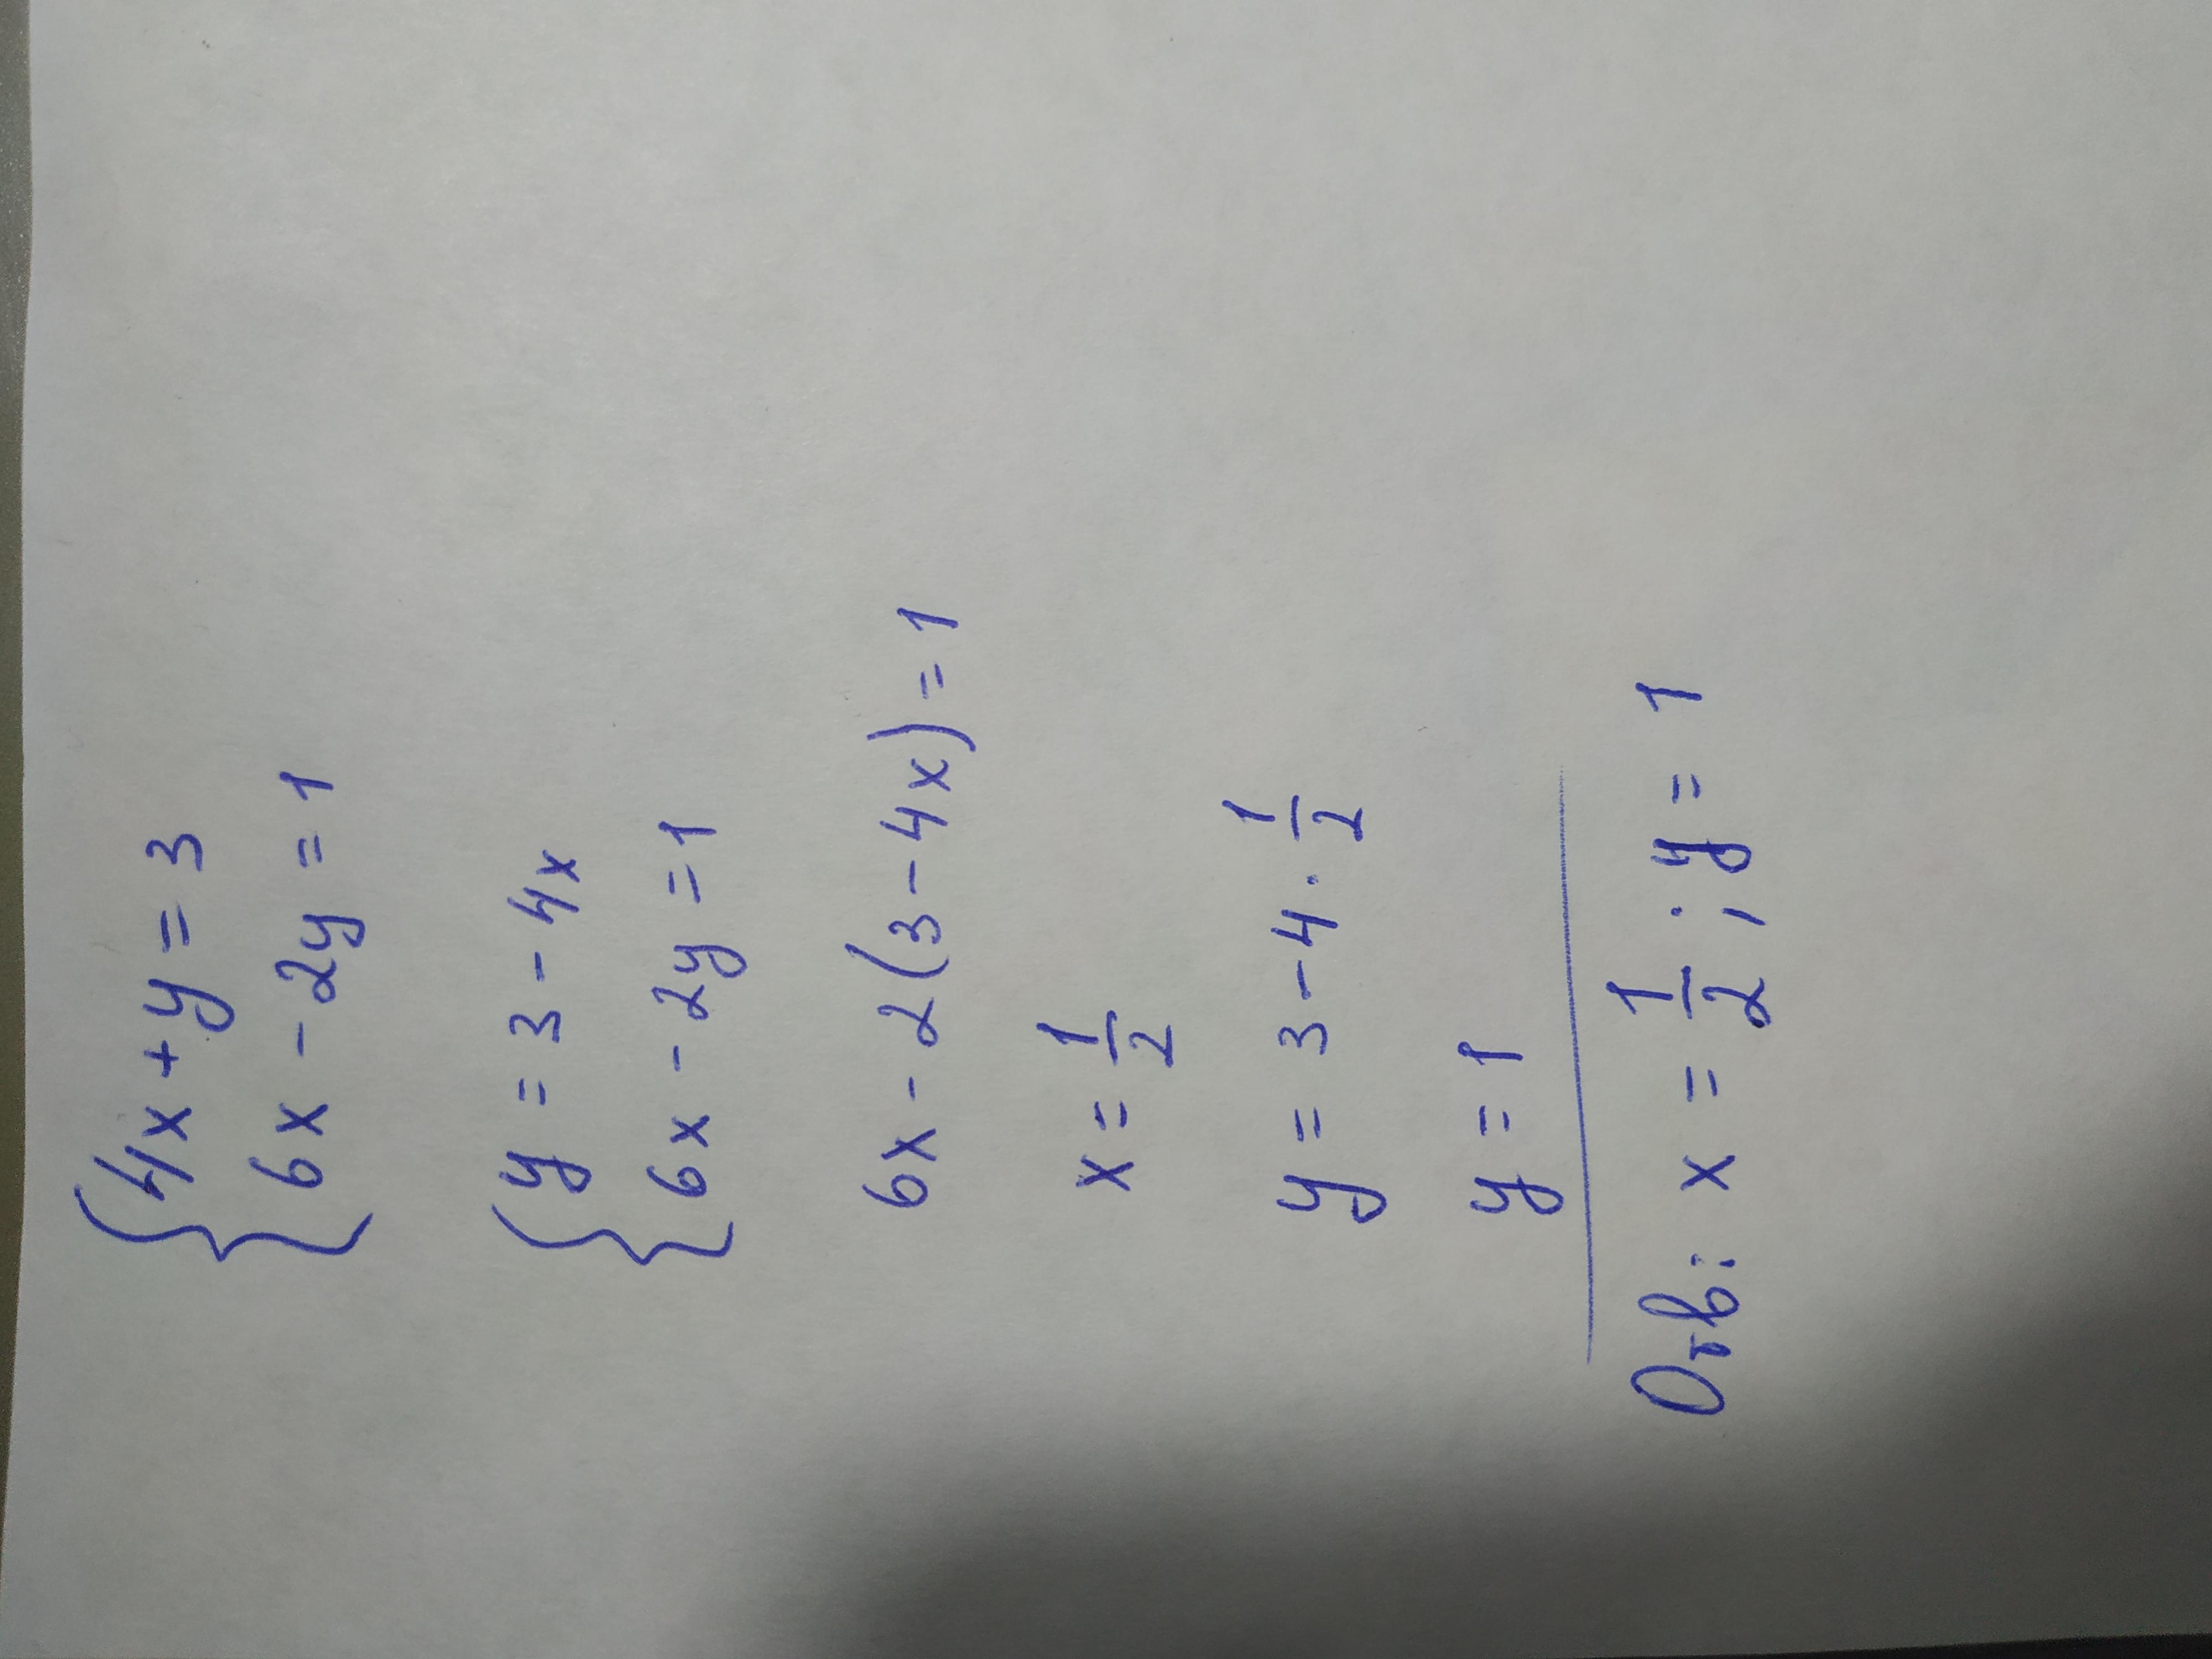 {4x+y=3
{6x-2y=1
{y=3-4x
{6x-2y=1
6x-2(3-4x)=1
x=1/2
y=3-4·1/2
y=1
Отв: x=1/2; y=1